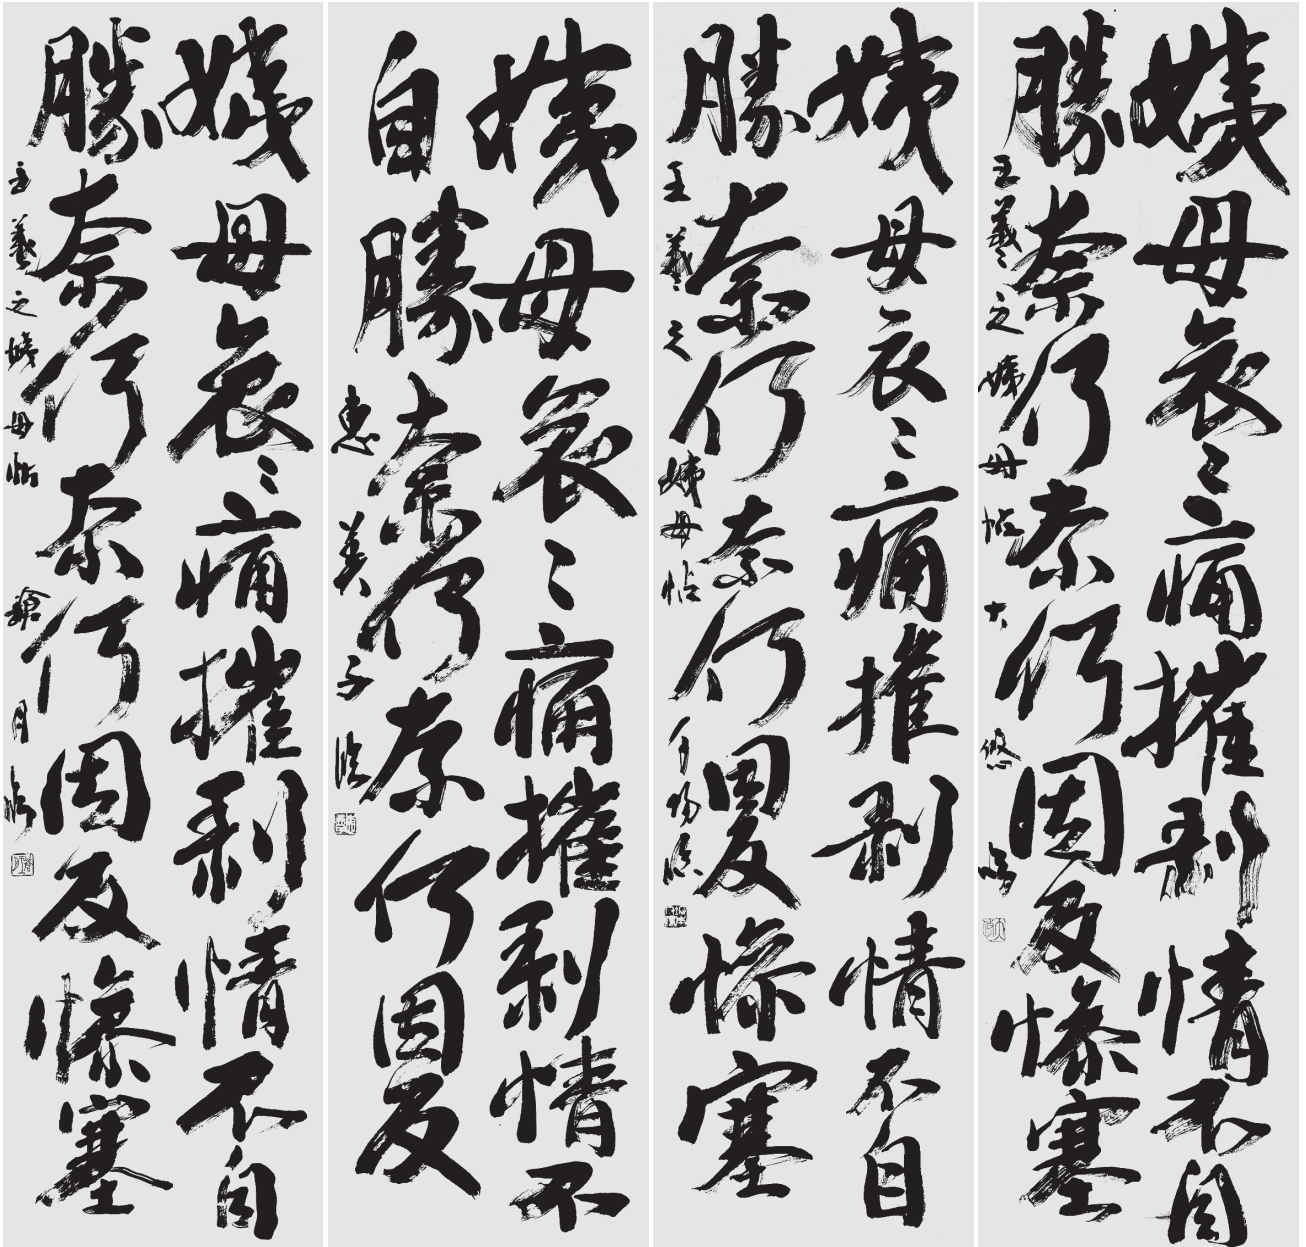 姨母哀々痛摧剥情不自
勝奈何奈何因反惨塞
王羲之姨母帖 大悠臨
姨母哀々痛摧剥情不自
勝奈何奈何因反惨塞
王羲之姨母帖 千臨
姨母哀々痛摧剥情不
自勝奈何奈何因反
恵美子臨
姨母哀々痛摧剥情不自
勝奈何奈何因反惨塞
王羲之姨母帖 月臨